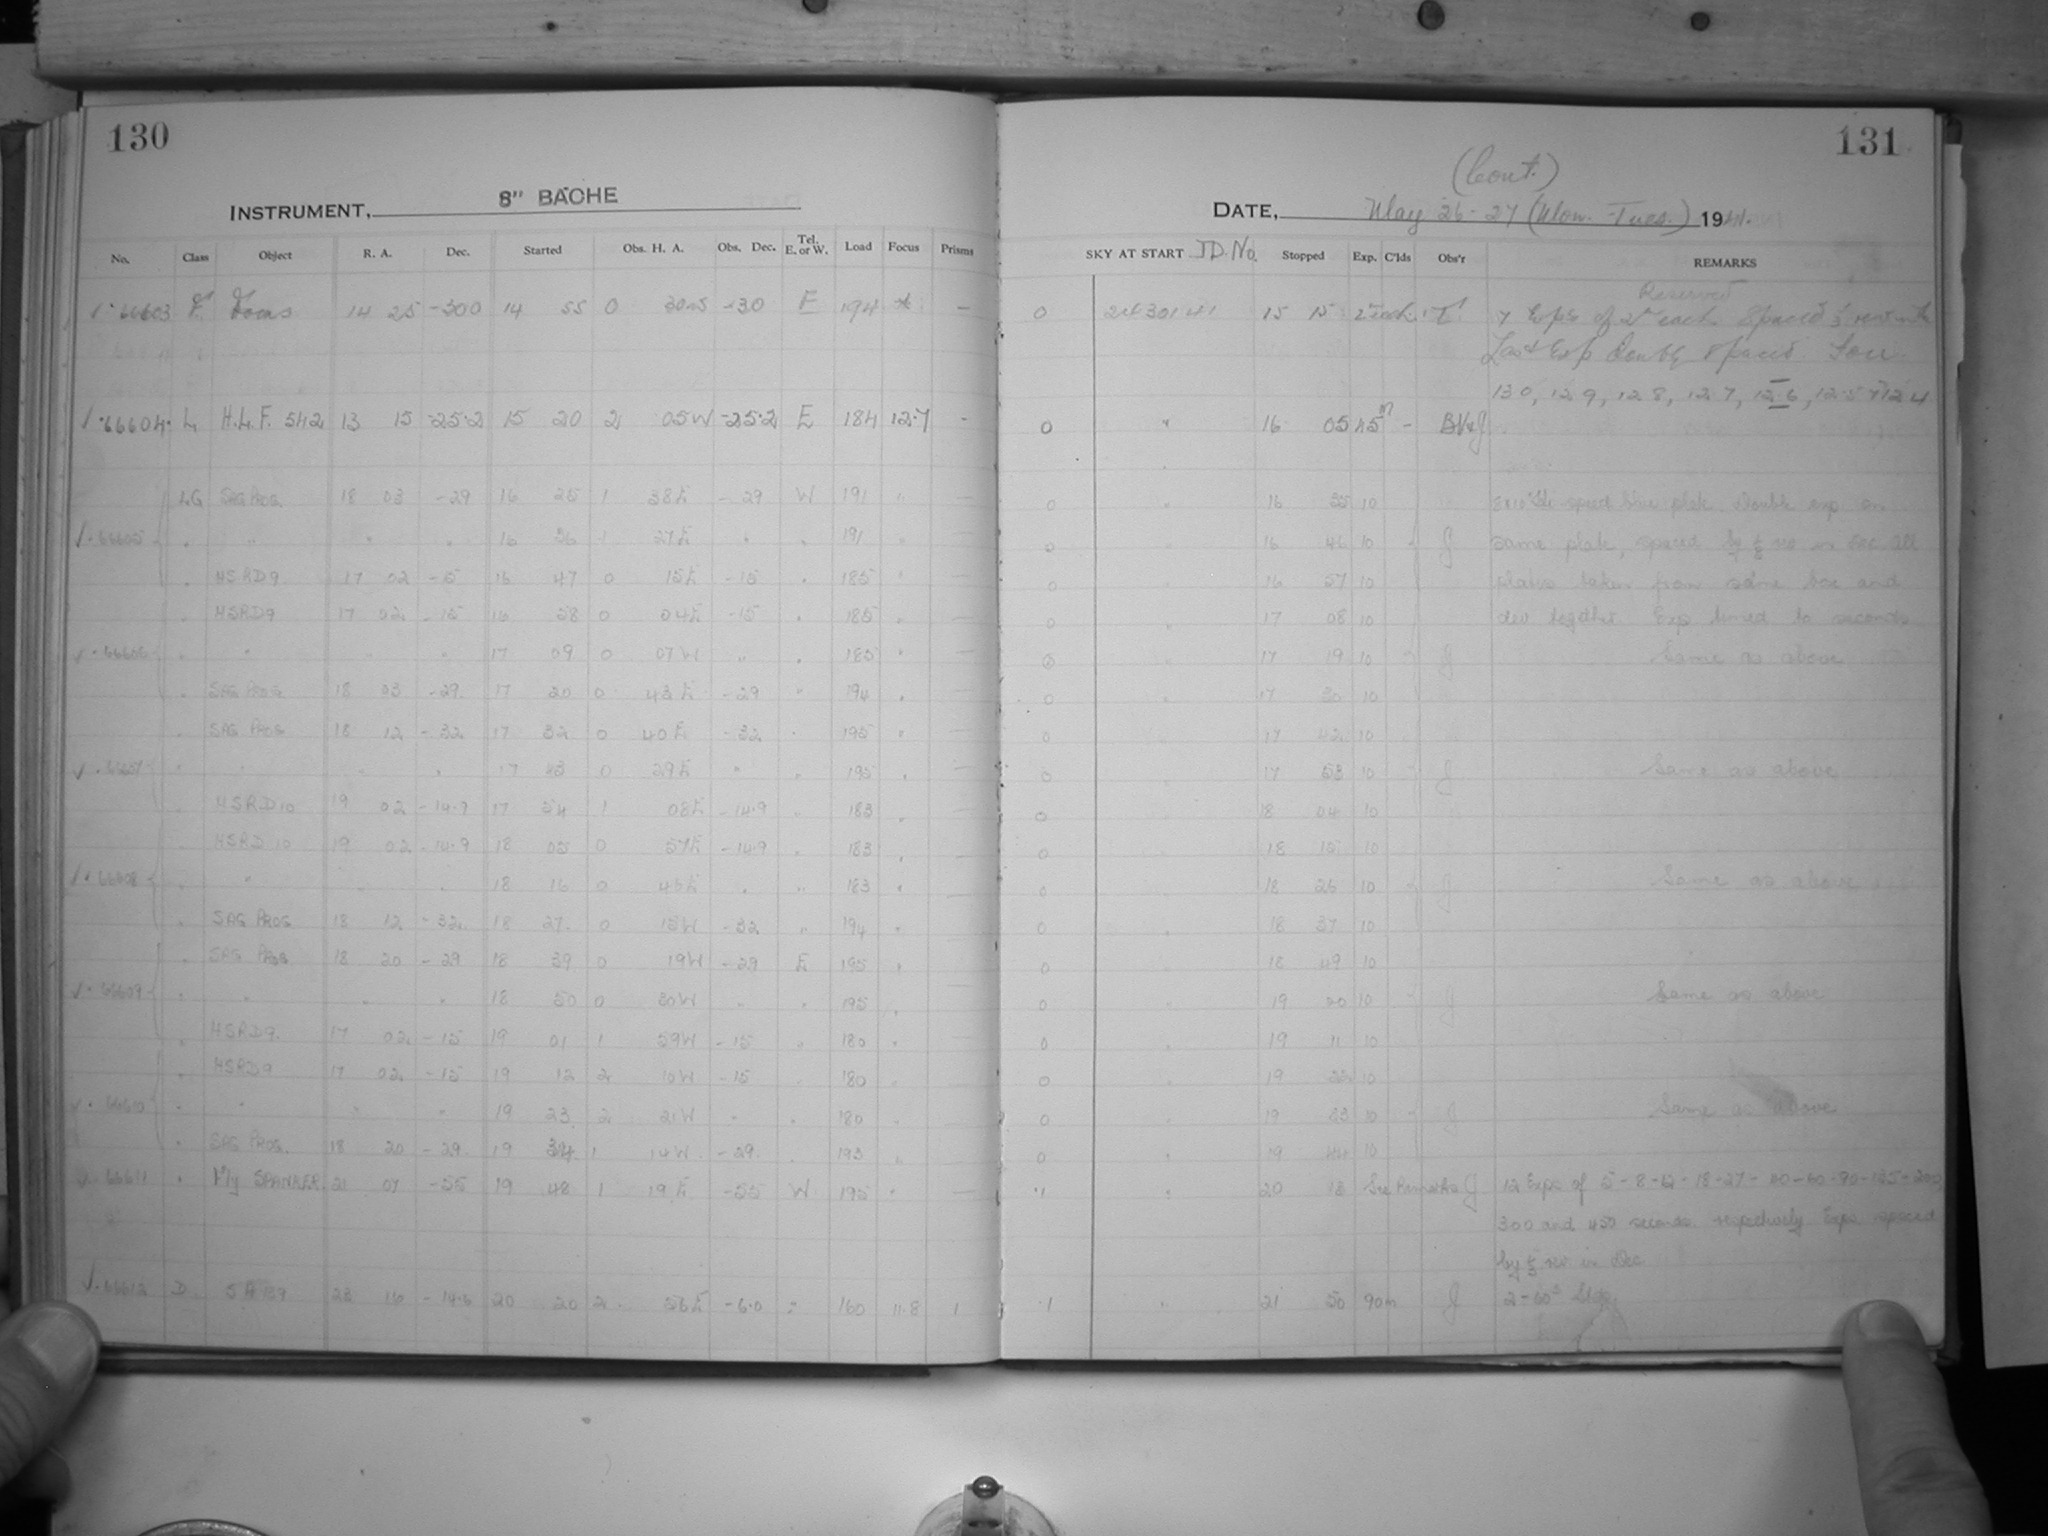 130
INSTRUMENT, 8" BACHE
No. Class Object R. A. Dec. Started Obs. H. A. Obs. Dec. Tel. E. or W. Load Focus Prisms
66603 F Focus 14 25 -30.0 14 55 0 30W -30 E 194 * —
66604 L H.L.F. 542 13 15 -25.2 15 20 2 05W -25.2 E 184 12.7 -
LG SAG PROG. 18 03 -29 16 25 1 38E -29 W 191 " —
66605 " " " " 16 36 1 27E " " 191 " —
" HSRD9 17 02 -15 16 47 0 15E -15 " 185 " —
" HSRD9 17 02 -15 16 58 0 04E -15 " 185 " —
66606 " " " " 17 09 0 07W " " 185 " —
" SAG PROG 18 03 -29 17 20 0 43E -29 " 194 " —
" SAG PROG 18 12 -32 17 32 0 40E -32 " 195 " —
" " " " 17 43 0 29E " " 195 " —
" HSRD10 19 02 -14.9 17 54 1 08E -14.9 " 183 " —
" HSRD 10 19 02 -14.9 18 05 0 57E -14.9 " 183 " —
66608 " " " " 18 16 0 46E " " 183 " —
" SAG PROG 18 12 -32 18 27 0 15W -32 " 194 " —
" SAG PROG 18 20 -29 18 39 0 19W -29 E 195 " —
66609 " " " " 18 50 0 30W " " 195 " —
" HSRD9. 17 02 -15 19 01 1 59W -15 " 180 " —
" HSRD9 17 02 -15 19 12 2 10W -15 " 180 " —
66610 " " " " 19 23 2 21W " " 180 " —
" SAG PROG. 18 20 -29 19 34 1 14W -29 " 193 " —
66611 " My SPANNER 21 07 -55 19 48 1 19E -55 W 195 " —
66612 D SA 139 23 16 -14.6 20 20 2 56E -6.0 " 160 11.8 1
131
(Cont.)
DATE, May 26-27 (Mon.-Tues.) 1941.
SKY AT START J.D. No. Stopped Exp. C'lds Obs'r REMARKS
Reserved
0 2430141 15 15 7 Exps of each Spaced
Last Exp doubly spaced Foci
13.0, 12.9, 12.8, 12.7, 12.6, 12.5 + 12.4
0 " 16 05 45m -
0 " 16 35 10 plate. Double exp on
0 " 16 46 10 J same plate, spaced by rev in dec All
0 " 16 57 10 plates taken from same box and
0 " 17 08 10 dev together. Exp timed to seconds
0 " 17 19 10 J Same as above
0 " 17 30 10
0 17 42 10
0 " 17 53 10 J Same as above
0 18 04 10
0 18 15 10
0 " 18 26 10 J Same as above
0 " 18 37 10
0 18 49 10
0 " 19 00 10 J Same as above
0 " 19 11 10
0 " 19 22 10
0 " 19 33 10 J Same as above
0 " 19 44 10
.1 " 20 18 See Remarks J 12 Exps of 5-8-12-18-27-40-60-90-135-200
300 and 450 seconds respectively Exps. spaced
by rev in Dec
.1 " 21 50 90m J 2-60s